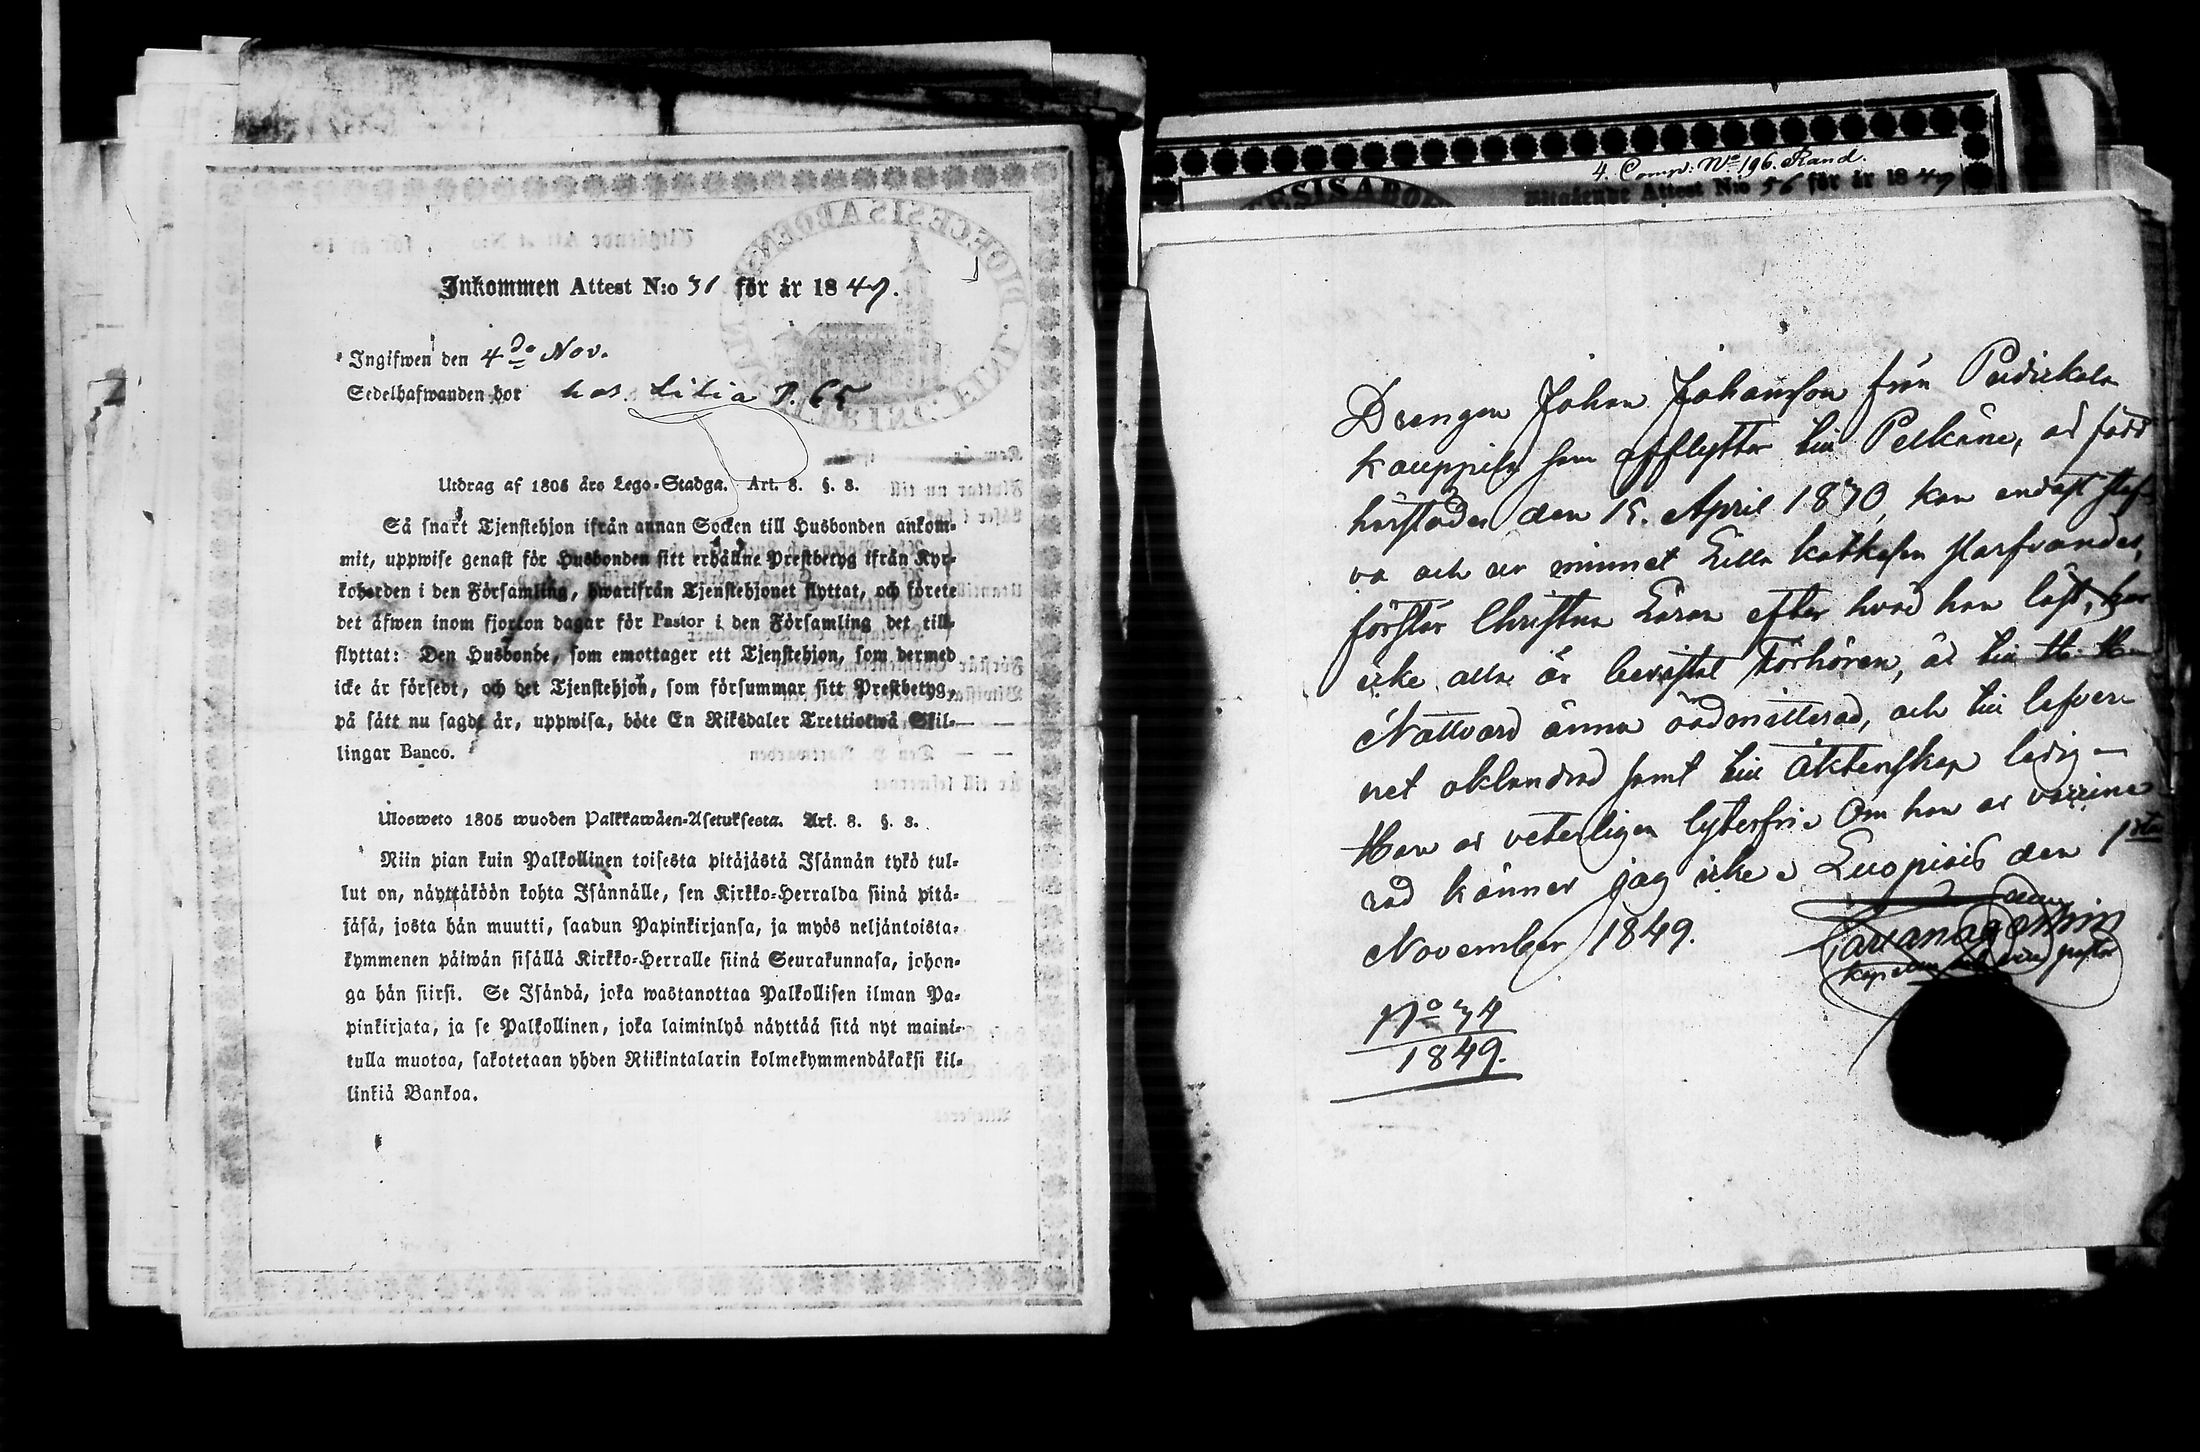 Inkommen Attest N:o 31 för år 1849.
Ingifwen den 4de Nov.
Sedelhafwanden bor hos Lilia P. 65
Utdrag af 1805 års Lego-Stadga. Art. 8. §. 8.
Så snart Tjenstehjon ifrån annan Socken till Husbonden ankom-
mit, uppwise genast för Husbonden sitt erhållne Prestbetyg ifrån Kyr-
koherden i den Församling, hwarifrån Tjenstehjonet flyttat, och förete
det äfwen inom fjorton dagar för Pastor i den Församling det till-
flyttat: Den Husbonde, som emottager ett Tjenstehjon, som dermed
icke är försedt, och det Tjenstehjon, som försummar sitt Prestbetyg,
på sätt nu sagdt är, uppwisa, böte En Riksdaler Trettiotwå Skil-
lingar Banco.
Ulosweto 1805 wuoden Palkkawäen-Asetuksesta. Art. 8. §. 8.
Niin pian kuin Palkollinen toisesta pitäjästä Isännän tykö tul-
lut on, näyttäköön kohta Isännälle, sen Kirkko-Herralda siinä pitä-
jäsä, josta hän muutti, saadun Papinkirjansa, ja myös neljäntoista-
kymmenen päiwän sisällä Kirkko-Herralle siinä Seurakunnasa, johon-
ga hän siirsi. Se Isändä, joka wastanottaa Palkollisen ilman Pa-
pinkirjata, ja se Palkollinen, joka laiminlyö näyttää sitä nyt maini-
tulla muotoa, sakotetaan yhden Riikintalarin kolmekymmendäkaksi kil-
linkiä Bankoa.
4. Comp: No 196. Rand.
Utgående Attest N:o 56 för år 1849
Drengen Johan Johansson från
Kauppila som afflyttar till Pelkäne, är född
härstädes den 15. April 1830, kan endast staf-
va och ur minnet Lilla katkesen
förstår Christna Läran efter hvad han läst, har
icke alla år bevistat Förhören, är till H. H.
Nattvard ännu oadmitterad, och till lefver-
net oklandrad samt till Äktenskap ledig —
Han är veterligen lytesfri. Om han är vaccine-
rad känner jag icke. Luopiois den 1sta
November 1849.
No 34
1849.